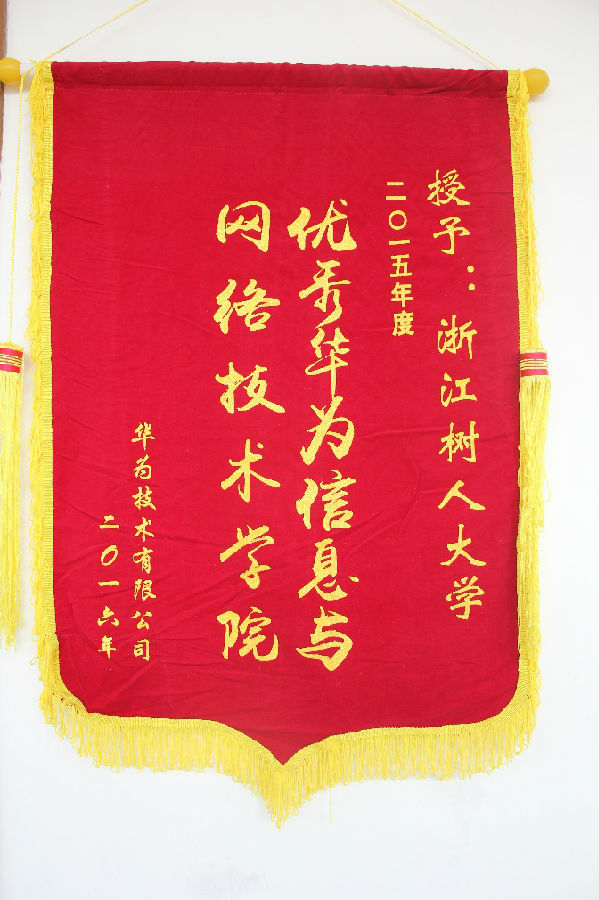 授予：浙江树人大学
二〇一五年度
优秀华为信息与
网络技术学院
华为技术有限公司
二〇一六年